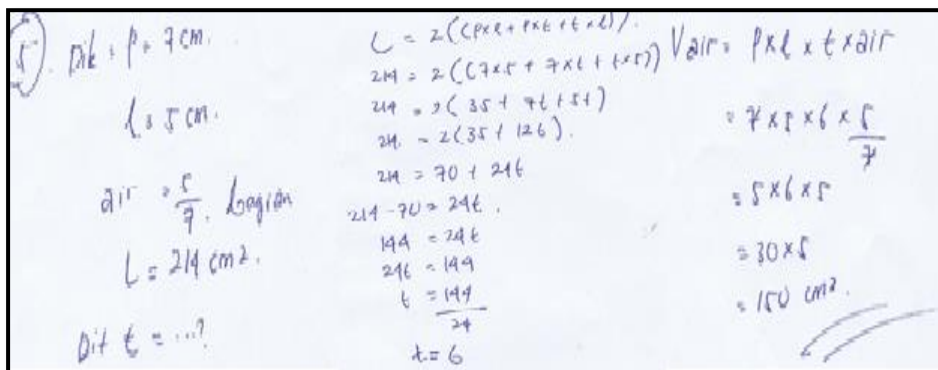 5). Dik : p = 7 cm.
l = 5 cm.
air = 5/7. bagian
L = 214 cm2.
Dit t = ...?
L = 2((pxl + pxt + txl)).
214 = 2((7x5 + 7xt + tx5))
214 = 2(35 + 7t + 5t)
214 = 2(35 + 12t).
214 = 70 + 24t
214 - 70 = 24t.
144 = 24t
24t = 144
t = 144/24
t = 6
Vair = p x l x t x air
= 7 x 5 x 6 x 5/7
= 5 x 6 x 5
= 30 x 5
= 150 cm2.